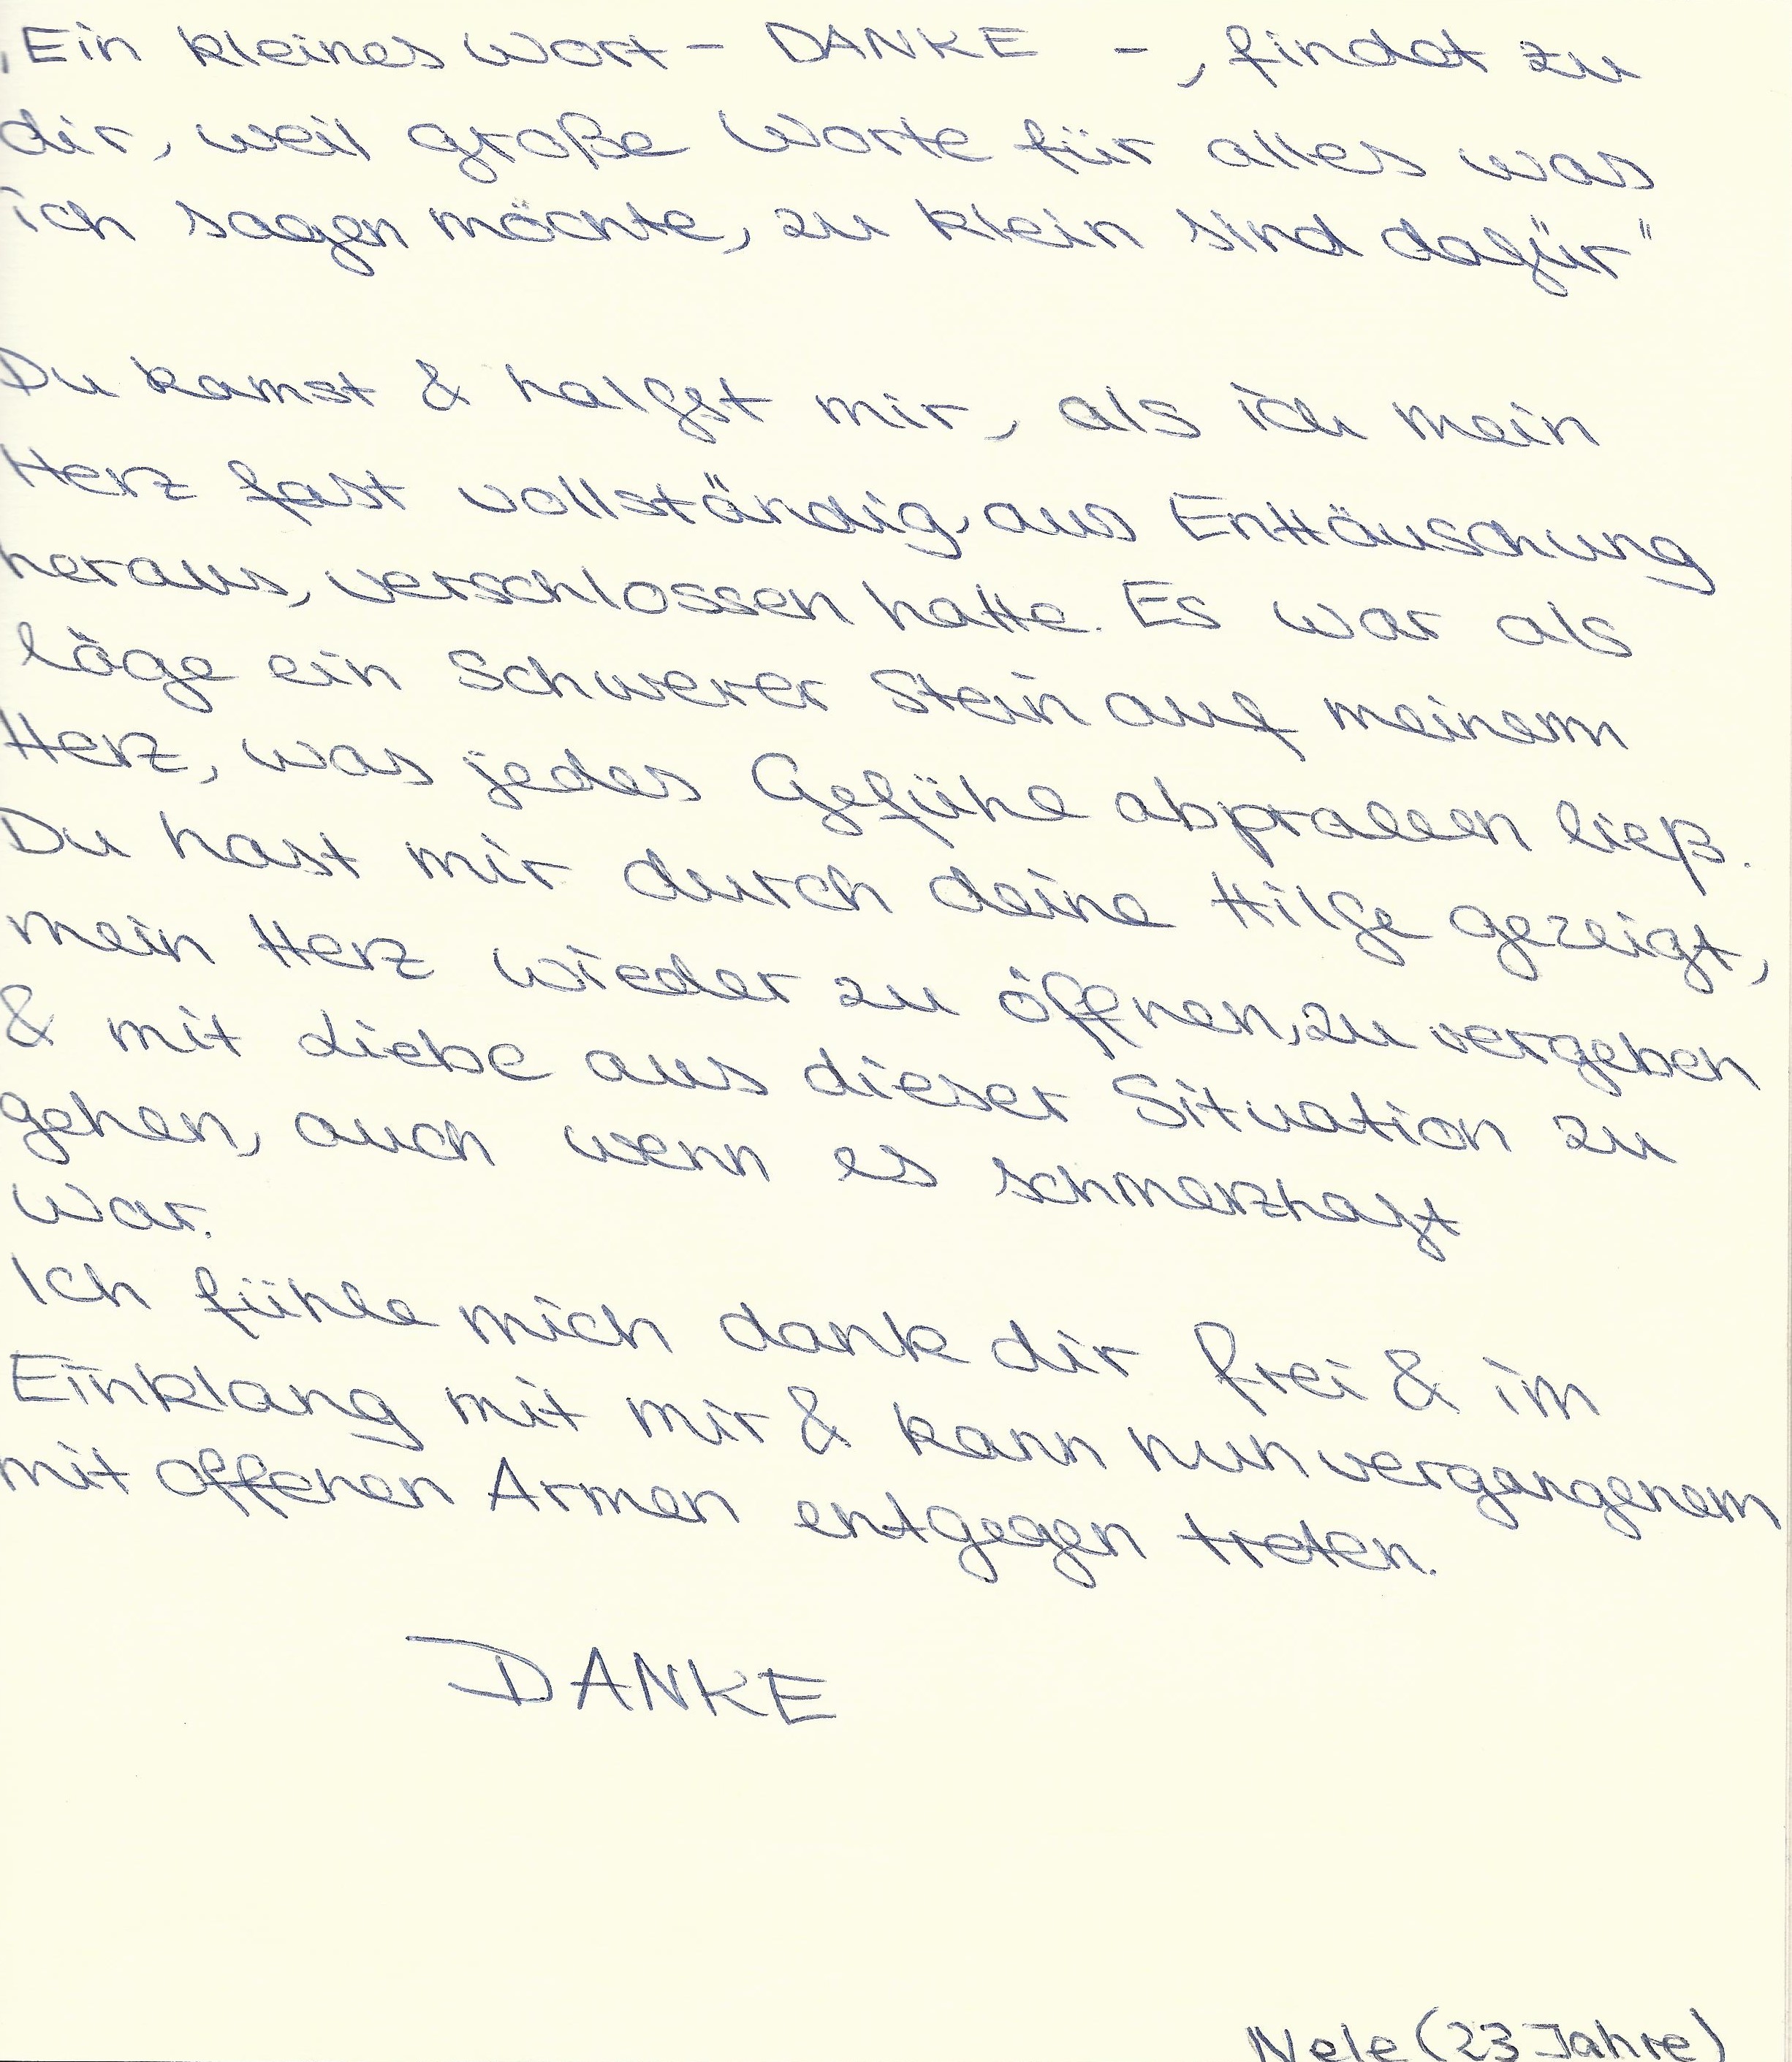 „Ein kleines Wort – DANKE –, findet zu
dir, weil große Worte für alles was
ich sagen möchte, zu klein sind dafür"
Du kamst & halfst mir, als ich mein
Herz fast vollständig, aus Enttäuschung
heraus, verschlossen hatte. Es war als
läge ein Schwerer Stein auf meinem
Herz, was jedes Gefühl abprallen ließ.
Du hast mir durch deine Hilfe gezeigt,
mein Herz wieder zu öffnen, zu vergeben
& mit Liebe aus dieser Situation zu
gehen, auch wenn es schmerzhaft
war.
Ich fühle mich dank dir frei & im
Einklang mit mir & kann nun vergangenem
mit offenen Armen entgegen treten.
DANKE
Nele (23 Jahre)